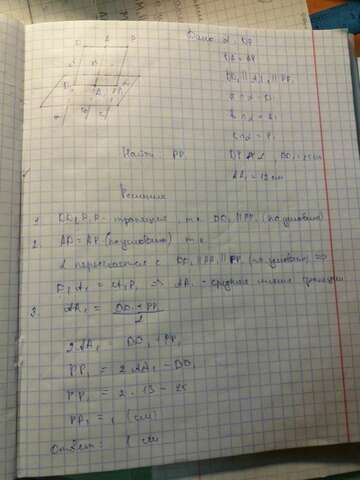 Дано: α, DP
DA = AP
DD₁ || AA₁ || PP₁
Найти: PP₁
DP ∩ α, DD₁ = 25 см
AA₁ = 13 см
Решение
1. DD₁P₁P - трапеция, т.к. DD₁ || PP₁ (по условию)
2. AD = AP (по условию) т.к.
α пересекается с DD₁ || AA₁ || PP₁ (по условию) ⇒
D₁A₁ = A₁P₁ ⇒ AA₁ - средняя линия трапеции
3. AA₁ = DD₁ + PP₁ / 2
2AA₁ = DD₁ + PP₁
PP₁ = 2AA₁ - DD₁
PP₁ = 2 · 13 - 25
PP₁ = 1 (см)
Ответ: 1 см